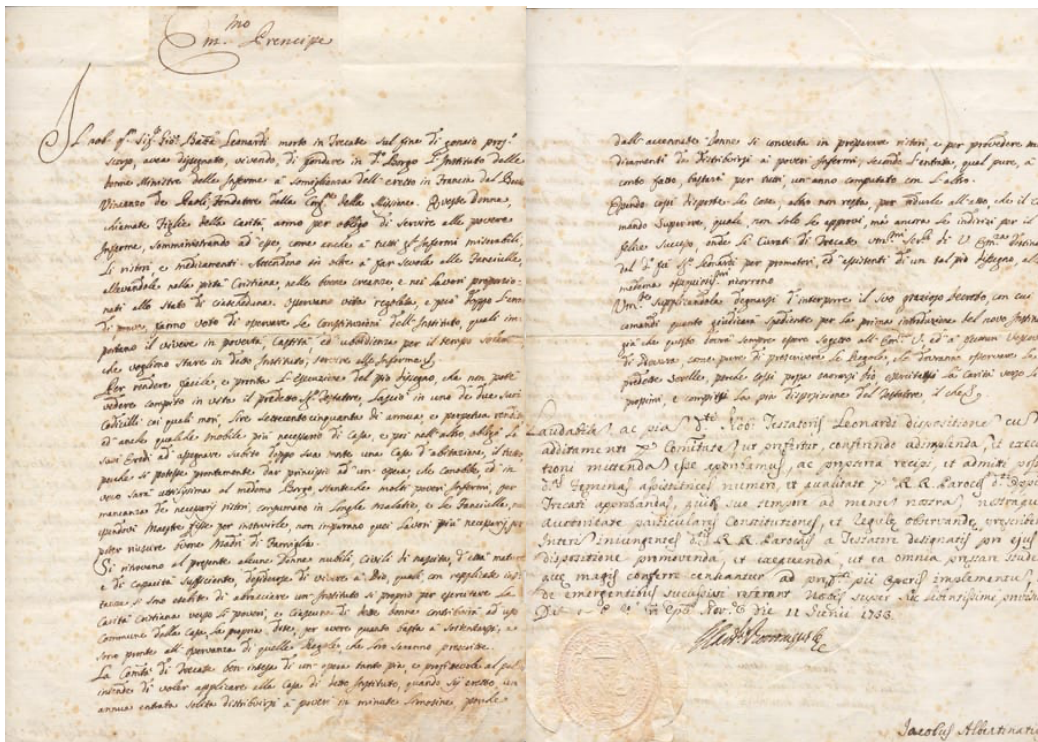 Em.mo Prencipe
Il nob. q. Sig. Gio: Batta Leonardi morto in Trecate sul fine di genaio pros.
scorso, avea disegnato, vivendo, di fondare in d.o Borgo l'Instituto delle
bonne Ministre delle Inferme a somiglianza dell'eretto in Francia dal Beato
Vincenzo de Paoli, fondatore della Cong.ne della Missione. Queste donne,
chiamate Figlie della Carità, anno per obligo di servire alle povere
Inferme, somministrando ad esse, come anche a tutti gl'Infermi miserabili,
li ristori, e medicamenti. Attendono in oltre a far scuola alle Fanciulle,
allevandole nella pietà Cristiana, nelle bonne creanze, e nei lavori proporzio-
nati allo stato di ciascheduna. Osservano vita regolata, e poscia doppo l'anno
di prova, fanno voto di osservare le Constituzioni dell'Instituto, quali im-
portano il vivere in povertà, castità ed ubbidienza per il tempo solam.te
che vogliono stare in detto Instituto, servire alle Inferme &.
Per rendere facile, e pronta l'esecuzione del pio disegno, che non potè
vedere compito in vita il predetto Sig. Testatore, lasciò in uno de due suoi
Codicilli coi quali morì, lire settecento cinquanta di annua, e perpetua rendita
ed anche qualche mobile più necessario di casa, e poi nell'altro, obligò li
suoi Eredi ad assegnare subito doppo sua morte una Casa d'abitazione, il tutto,
perchè si potesse prontamente dar principio ad un'opera, che ed in
vero sarà utilissima al medemo Borgo, stantechè molti poveri Infermi, per
mancanza de necessarj ristori, consumano in longhe malatie, e le Fanciulle, non
essendovi Maestre fisse per instruirle, non imparano quei lavori più necessarj per
poter riuscire bonne Madri di Famiglia.
Si ritrovano al presente alcune Donne nubili, civili di nascita, d'età matura
e di capacità sufficiente, desiderose di vivere a Dio, quali con replicate ins-
tanze si sono esibite di abracciare un'Instituto sì proprio per esercitare la
Carità Cristiana verso li poveri, e ciascuna di dette donne contribuirà ad uso
Commune della Casa, la propria dote, per avere quanto basta a sostentarsi, e
sono pronte all'osservanza di quelle Regole, che loro saranno prescritte.
La Comtà di Trecate ben intesa di un'opera tanto pia, e profittevole al pub.
intende di voler applicare alla Casa di detto Instituto, quando sij eretto, un
annua entrata solita distribuirsi a poveri in minute limosine, perchè
dall'accennate donne si converta in preparare ristori, e per provedere me-
dicamenti da distribuirsi a poveri Infermi, secondo l'entrata, qual pure, a
conto fatto, bastarà per tutti, un'anno computato con l'altro.
Essendo così disposte le cose, altro non resta, per ridurle all'atto, che il co-
mando Superiore, quale, non solo le approvi, ma ancora le indirizi per il
felice successo, onde li Curati di Trecate um.mi Ser.i di V. Em.za destinati
dal d.o fu Sig. Leonardi per promotori, ed assistenti di un tal pio disegno, alla
medema ossequiosi.mi ricorrono
Um.te Supplicandola degnarsi d'interporre il suo grazioso Decreto, con cui
comandi quanto giudicarà spediente per la prima introduzione del novo Instituto
già che questo dovrà sempre essere sogetto all'Em.za V. ed a
di Novara, come pure di prescrivere le Regole, che dovranno osservare le
predette Sorelle, perchè così possa onorarsi Dio, esercitarsi la Carità verso li
prossimi, e compirsi la pia disposizione del Testatore, il che &.
Laudabili, ac pia D.ti Nob: Testatoris Leonardi dispositione cum
additamento Comitate, ut prefertur, conferendo adimplenda, et execu-
tioni mittenda esse aponiamus, ac propterea recipi, et admitti posse
Feminas assistentices numeri, et qualitate R.R. Parocos
Trecati approbandas, sue semper ad mentem nostram, nostraque
autoritate particulares Constitutiones, et Regule observande
Interim R.R. Parochis a Testatore designatis pro ejus
dispositione promovenda, et exequenda, ut ea omnia prestare studeant
que magis conferre censeantur ad pii operis implementum,
de emergentibus successive referant Nobis super sic
die 11 Junii 1733.
Jacobus Albertinatis